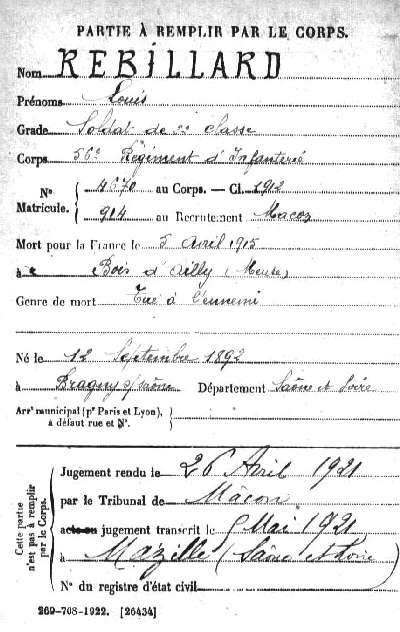 PARTIE À REMPLIR PAR LE CORPS.
Nom REBILLARD
Prénoms Louis
Grade Soldat de 2e classe
Corps 56e Régiment d'Infanterie
Nos Matricule. { 4670 au Corps. — Cl. 1912
914 au Recrutement Macon
Mort pour la France le 5 Avril 1915
à Bois d'Ailly (Meuse)
Genre de mort Tué à l'ennemi
Né le 12 Septembre 1892
à Bragny s/ Saône Département Saône et Loire
Arrt municipal (pr Paris et Lyon),
à défaut rue et N°.
Cette partie n'est pas à remplir par le Corps.
Jugement rendu le 26 Avril 1921
par le Tribunal de Mâcon
acte ou jugement transcrit le Mai 1921
à Mazille (Saône et Loire)
N° du registre d'état civil
269-708-1922. [26434]